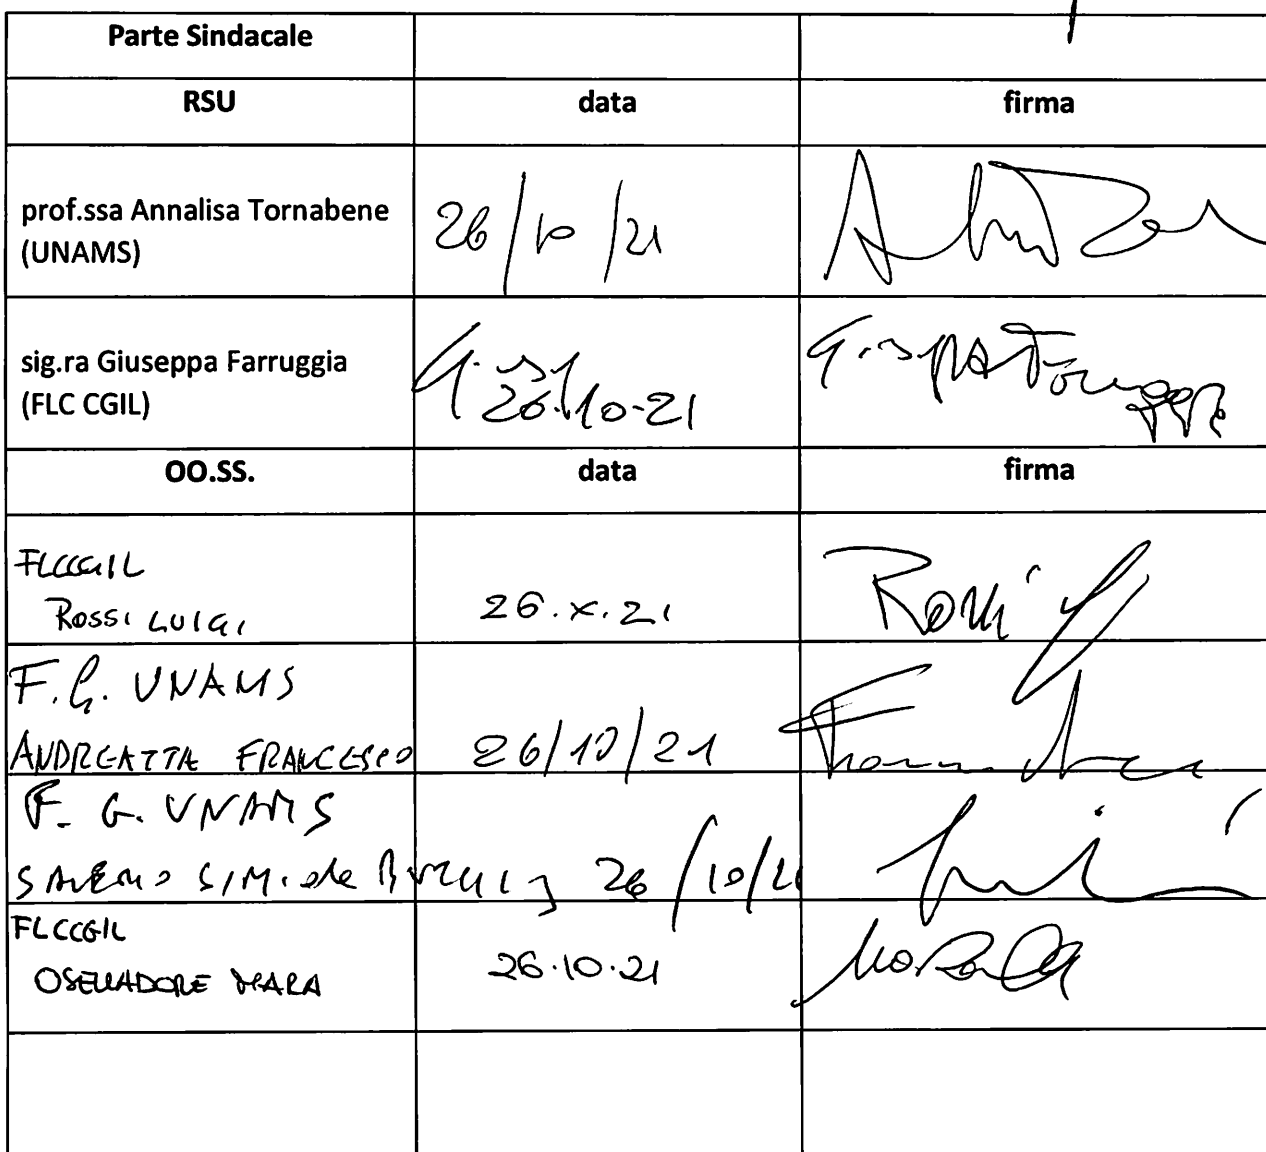 Parte Sindacale
RSU data firma
prof.ssa Annalisa Tornabene
(UNAMS) 26/10/21
sig.ra Giuseppa Farruggia
(FLC CGIL) 26.10-21
OO.SS. data firma
FLCCGIL
ROSSI LUIGI 26.X.21 Rossi
F.G. UNAMS
ANDREATTA FRANCESCO 26/10/21
F. G. UNAMS
SAVERIO SIMI de 26/10/21
FLCCGIL
OSELLADORE MARA 26.10.21